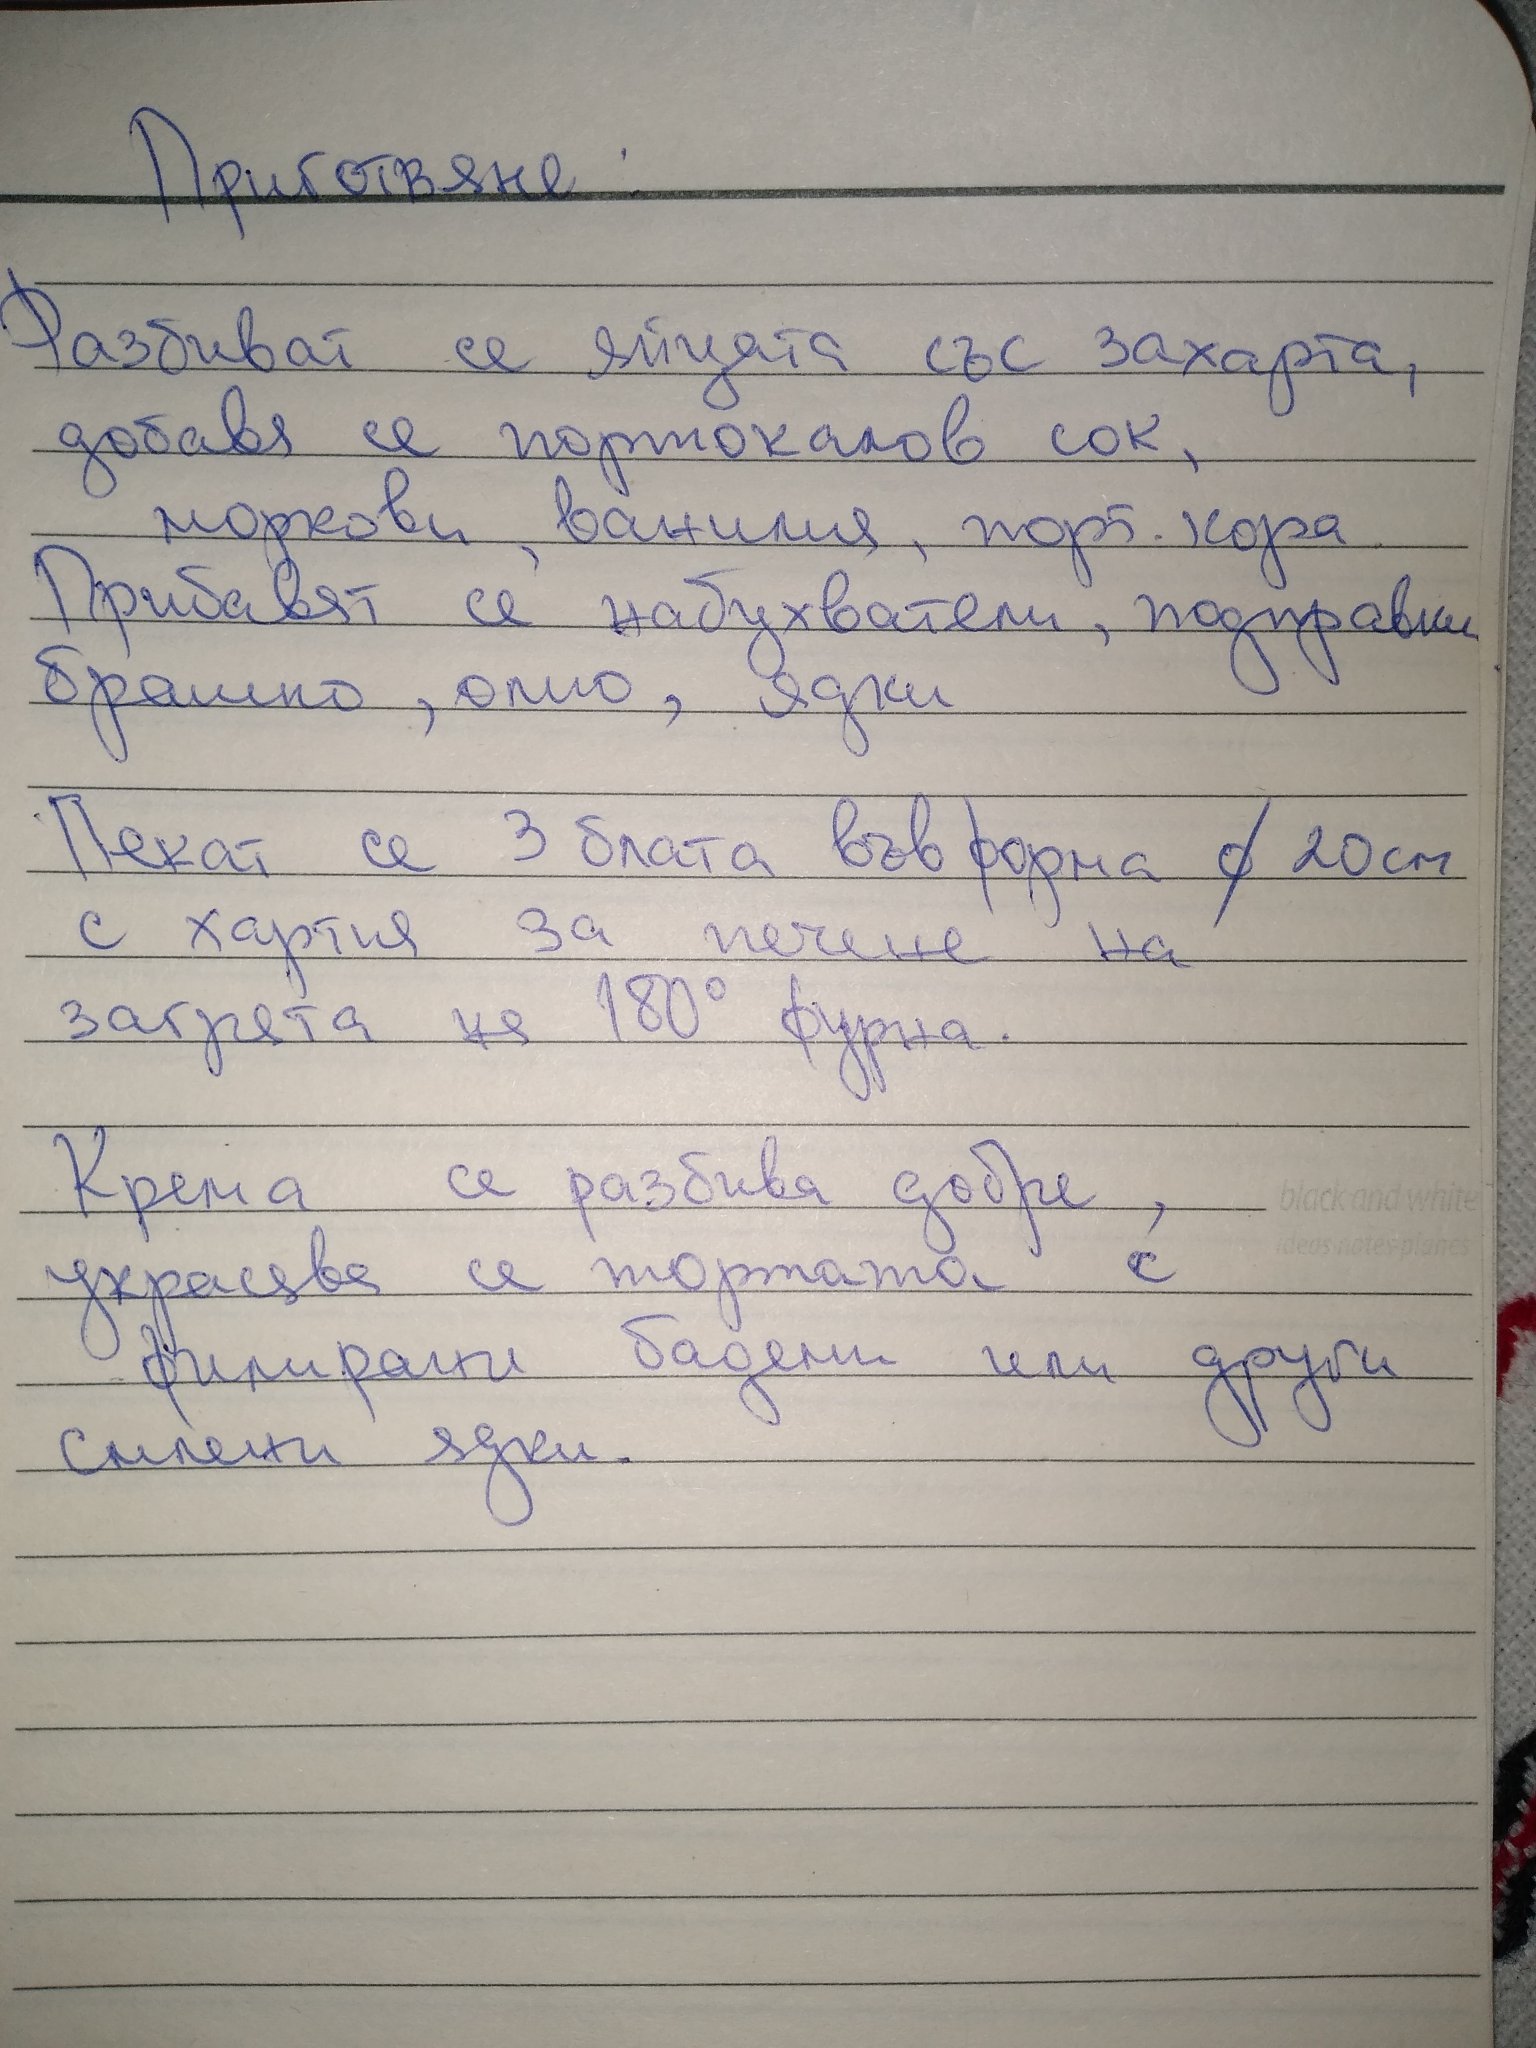 Приготвяне:
Разбиват се яйцата със захарта,
добавя се портокалов сок,
моркови, ванилия, порт. кора
Прибавят се набухватели, подправки
брашно, олио, ядки
Пекат се 3 блата във форма ф 20см
с хартия за печене на
загрята на 180° фурна.
Крема се разбива добре,
black and white
ideas notes planes
украсява се тортата с
филирани бадеми или други
смлени ядки.